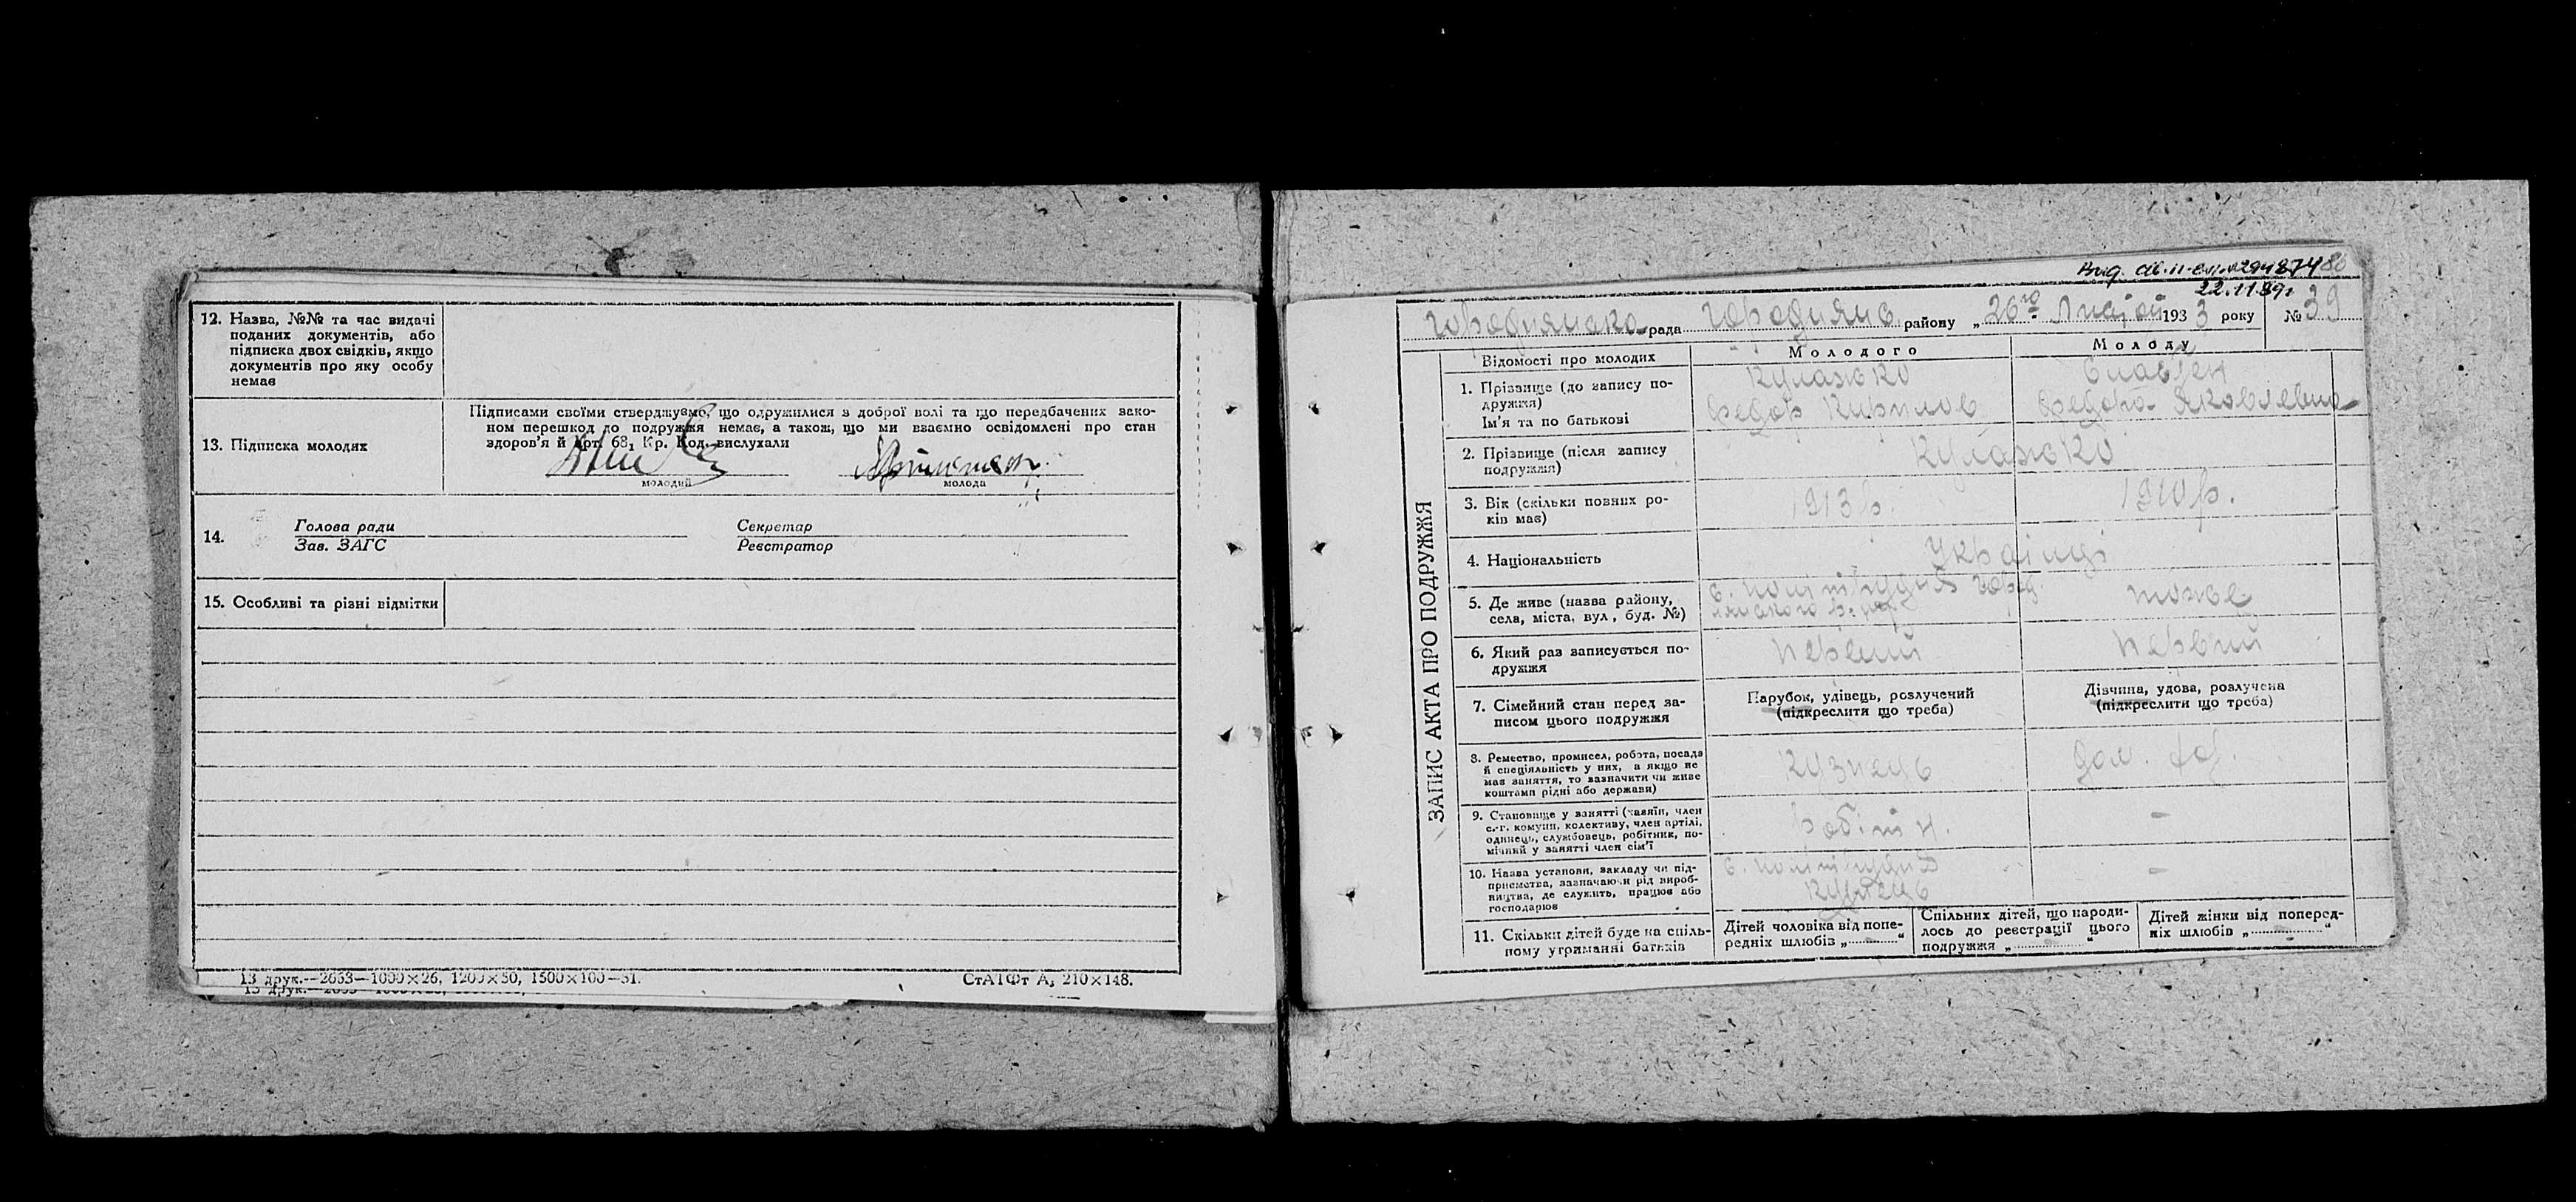 12. Назва, №№ та час видачі
поданих документів, або
підписка двох свідків, якщо
документів про яку особу
немає
13. Підписка молодих
Підписами своїми стверджуємо, що одружилися з доброї волі та що передбачених зако-
ном перешкод до подружжя немає, а також, що ми взаємно освідомлені про стан
здоров'я й Арт. 68, Кр. Код. вислухали
молодий
молода
14.
Голова ради
Зав. ЗАГС
Секретар
Реєстратор
15. Особливі та різні відмітки
13 друк.—2653—1000×26, 1200×50, 1500×100—31.
СтАТФт А, 210×148.
22.11.89г
рада Городнянс. району „ 26го Лютой 1933 року № 39
ЗАПИС АКТА ПРО ПОДРУЖЖЯ
Відомості про молодих
Молодого
Молоду
1. Прізвище (до запису по-
дружжя)
Ім'я та по батькові
Кулажко
Федор Кирилов
Федора Яковлевна
2. Прізвище (після запису
подружжя)
Кулажко
3. Вік (скільки повних ро-
ків має)
1913 р.
1910 р.
4. Національність
Українці
5. Де живе (назва району,
села, міста, вул., буд. №)
тоже
6. Який раз записується по-
дружжя
первий
первий
7. Сімейний стан перед за-
писом цього подружжя
Парубок, удівець, розлучений
(підкреслити що треба)
Дівчина, удова, розлучена
(підкреслити що треба)
8. Ремество, промисел, робота, посада
й спеціяльність у них, а якщо не
має заняття, то зазначити чи живе
коштами рідні або держави)
кузнець
дом. хоз.
9. Становище у занятті (хазяїн, член
с.-г. комуни, колективу, член артілі,
одинець, службовець, робітник, по-
мічний у занятті член сім'ї
робітн.
-
10. Назва установи, закладу чи під-
приємства, зазначаючи рід вироб-
ництва, де служить, працює або
господарює
кузнець
-
11. Скільки дітей буде на спіль-
ному утриманні батьків
Дітей чоловіка від попе-
редніх шлюбів „........“
Спільних дітей, що народи-
лось до реєстрації цього
подружжя „........“
Дітей жінки від поперед-
ніх шлюбів „........“